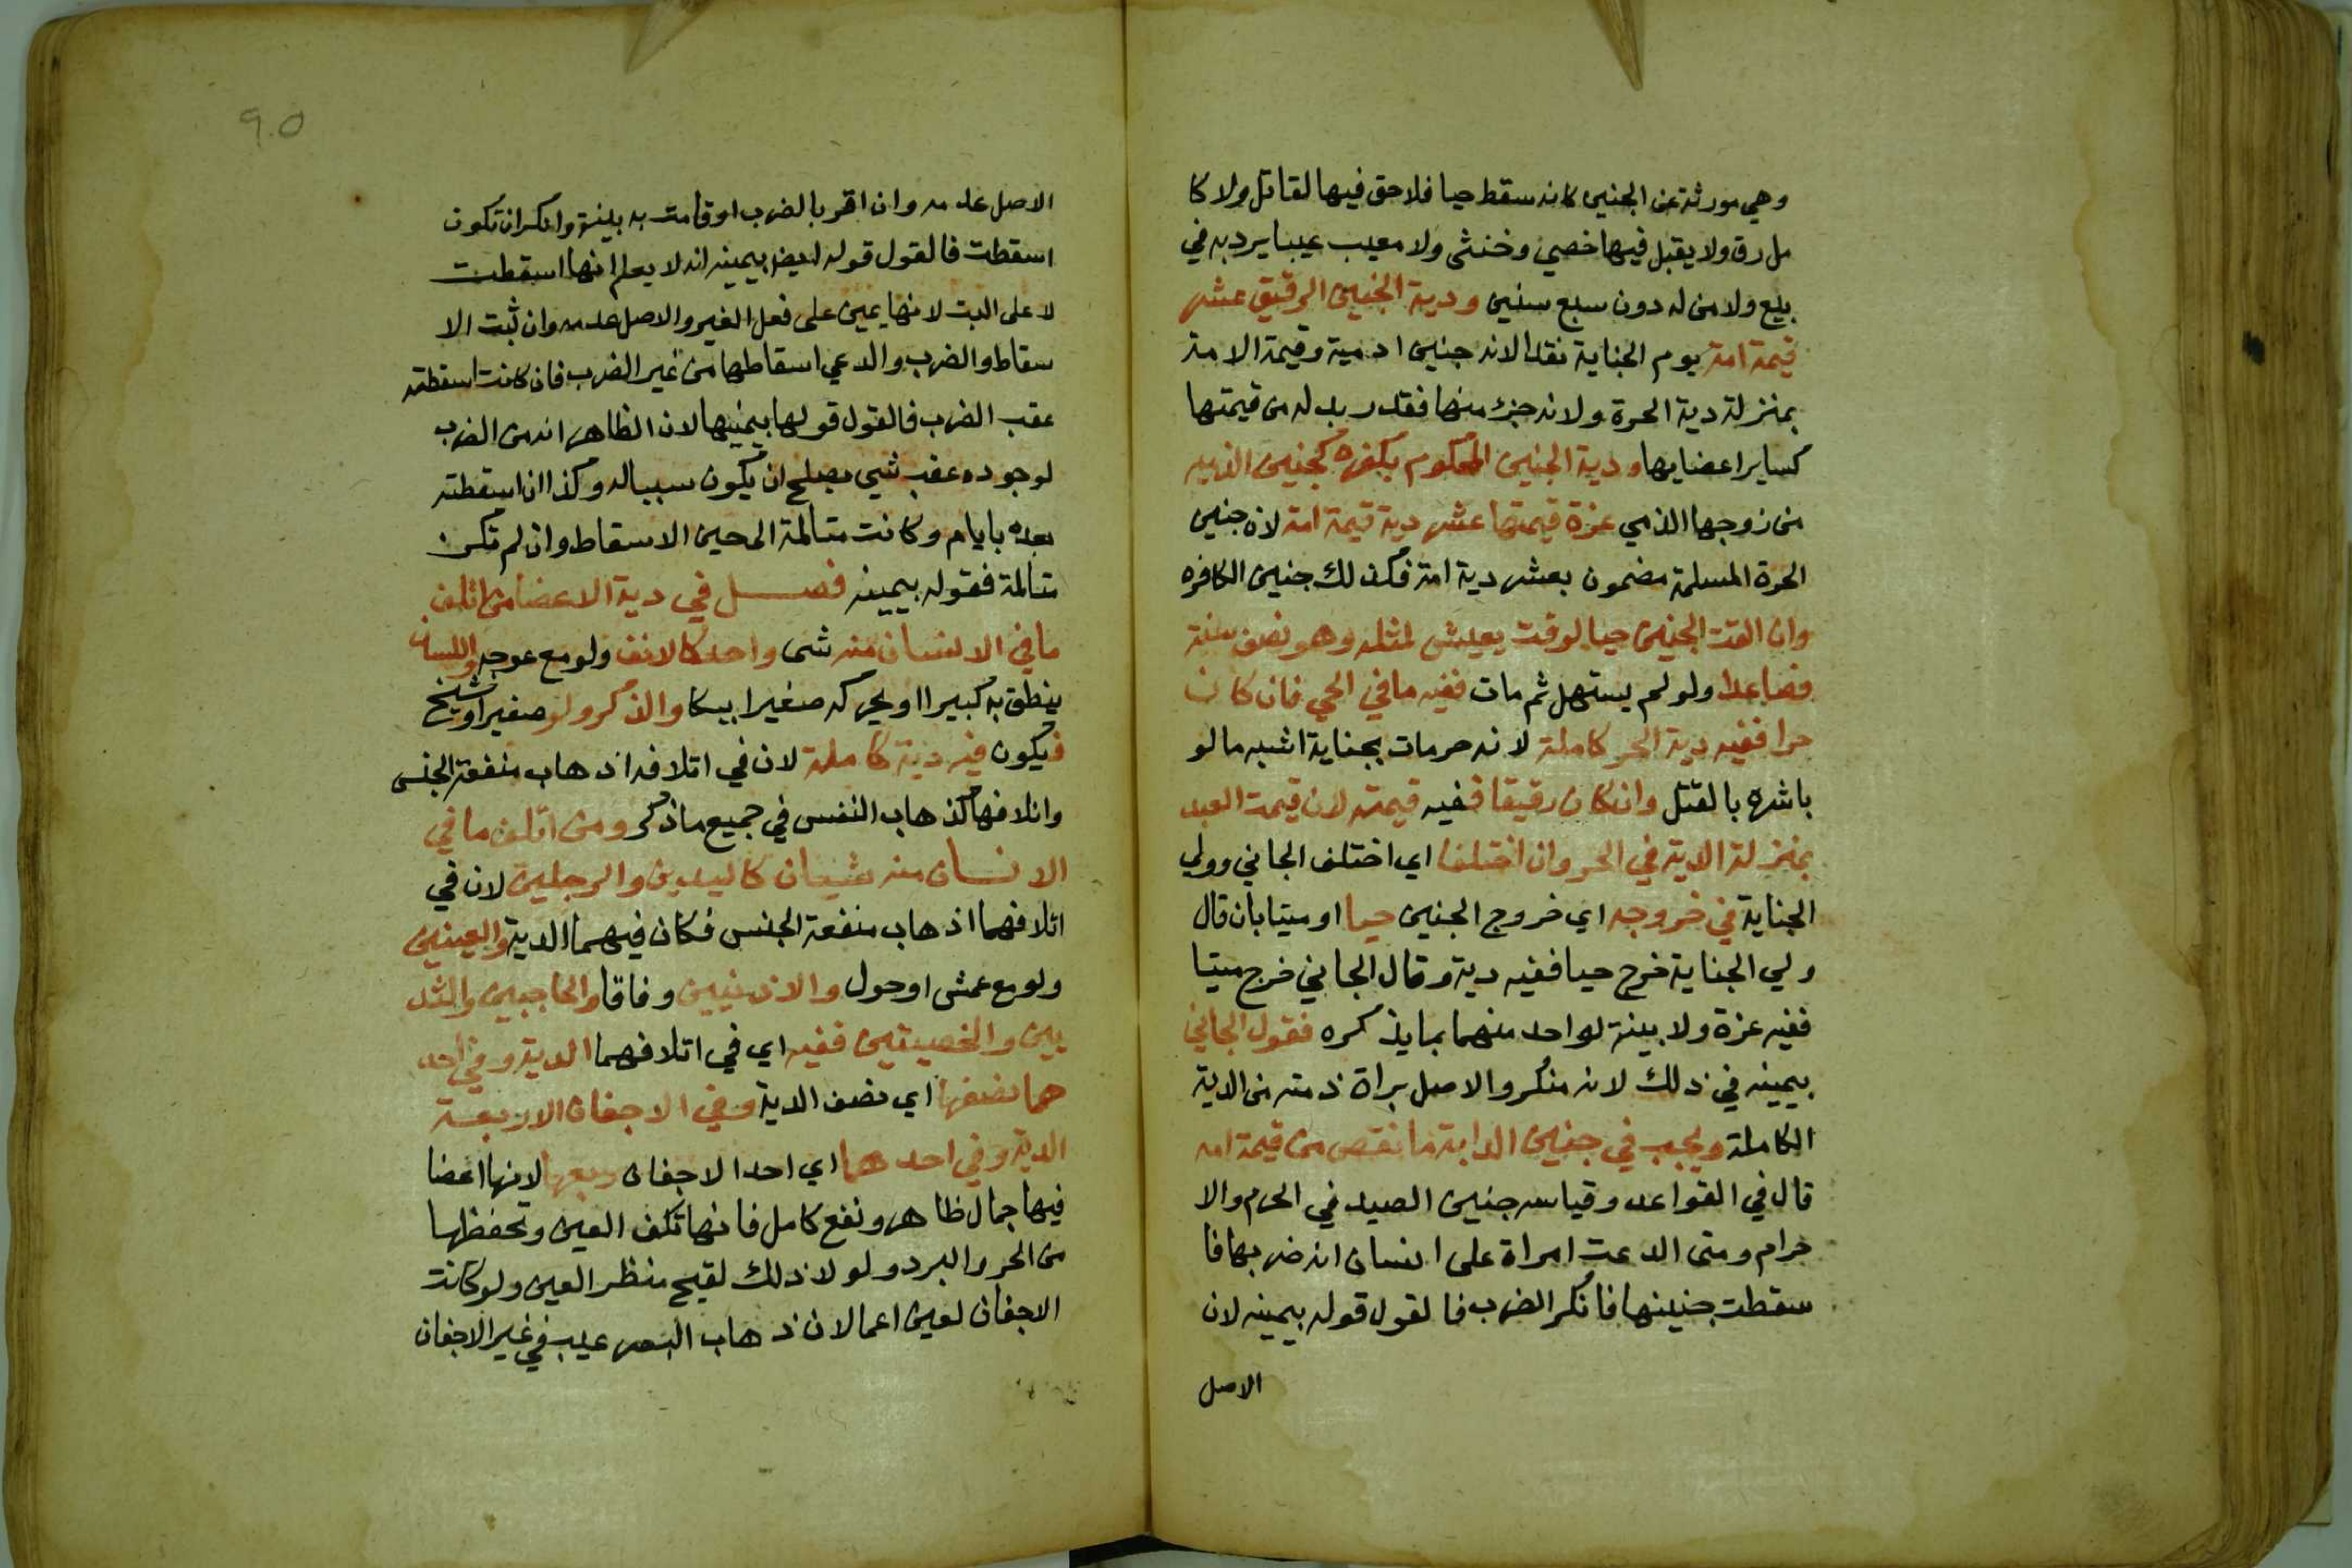 وهي مورثة عن الجنين كانه سقط حيا فلا حق فيها لقاتل ولا كا
مل رق ولا يقبل فيها خصي وخنثى ولا معيب عيبا يرد به في
بيع ولا من له دون سبع سنين ودية الجنين الرقيق عشر
قيمة امة يوم الجناية نقدا لانه جنين ادمية وقيمة الامة
بمنزلة دية الحرة ولانه جزء منها فقدر بدله من قيمتها
كساير اعضايها ودية الجنين المحكوم بكفره كجنين الذميه
من زوجها الذمي غرة قيمتها عشر دية قيمة امة لان جنين
الحرة المسلمة مضمون بعشر دية امة فكذلك جنين الكافره
وان القت الجنين حيا لوقت يعيش لمثله وهو نصف سنة
فصاعدا ولو لم يستهل ثم مات ففيه ما في الحي فان كان
حرا ففيه دية الحر كاملة لانه حر مات بجناية اشبه ما لو
باشره بالقتل وان كان رقيقا ففيه قيمته لان قيمة العبد
بمنزلة الدية في الحر وان اختلفا اي اختلف الجاني وولي
الجناية في خروجه اي خروج الجنين حيا او ميتا بان قال
ولي الجناية خرج حيا ففيه دية وقال الجاني خرج ميتا
ففيه غرة ولا بينة لواحد منهما بما يذكره فقول الجاني
بيمينه في ذلك لانه منكر والاصل براة ذمته من الدية
الكاملة ويجب في جنين الدابة ما نقص من قيمة امه
قال في القواعد وقياسه جنين الصيد في الحرم والا
حرام ومتى ادعت امراة على انسان انه ضربها فا
سقطت جنينها فانكر الضرب فالقول قوله بيمينه لان
الاصل
9.5
الاصل عدمه وان اقر بالضرب او قامت به بينة وانكر ان تكون
اسقطت فالقول قوله ايضا بيمينه انه لا يعلم انها اسقطت
لا على البت لانها يمين على فعل الغير والاصل عدمه وان ثبت الا
سقاط والضرب وادعي اسقاطها من غير الضرب فان كانت اسقطته
عقب الضرب فالقول قولها بيمينها لان الظاهر انه من الضرب
لوجوده عقب شي يصلح ان يكون سببا له وكذا ان اسقطته
بعده بايام وكانت متالمة الى حين الاسقاط وان لم تكن
متالمة فقوله بيمينه فصل في دية الاعضا من اتلف
ما في الانسان منه شي واحد كالانف ولو مع عوجه واللسان
ينطق به كبيرا او يحركه صغيرا ببكا والذكر ولو صغيرا او شيخ
فيكون فيه دية كاملة لان في اتلافه اذهاب منفعة الجنس
واتلافها كذهاب النفس في جميع ما ذكر ومن اتلف ما في
الانسان منه شيان كاليدين والرجلين لان في
اتلافهما اذهاب منفعة الجنس فكان فيهما الدية والعينين
ولو مع عمش او حول والاذنيين وفاقا والحاجبين والثد
يين والخصيتين ففيه اي في اتلافهما الدية وفي احد
هما نصفها اي نصف الدية وفي الاجفان الاربعة
الدية وفي احدهما اي احد الاجفان ربعها لانها اعضا
فيها جمال ظاهر ونفع كامل فانها تكف العين وتحفظها
من الحر والبرد ولولا ذلك لقبح منظر العين ولو كانت
الاجفان لعين اعما لان ذهاب البصر عيب في غير الاجفان